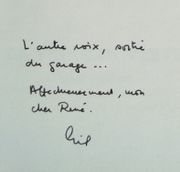 L'autre voix, sortie
du garage ...
Affectueusement, mon
cher René.